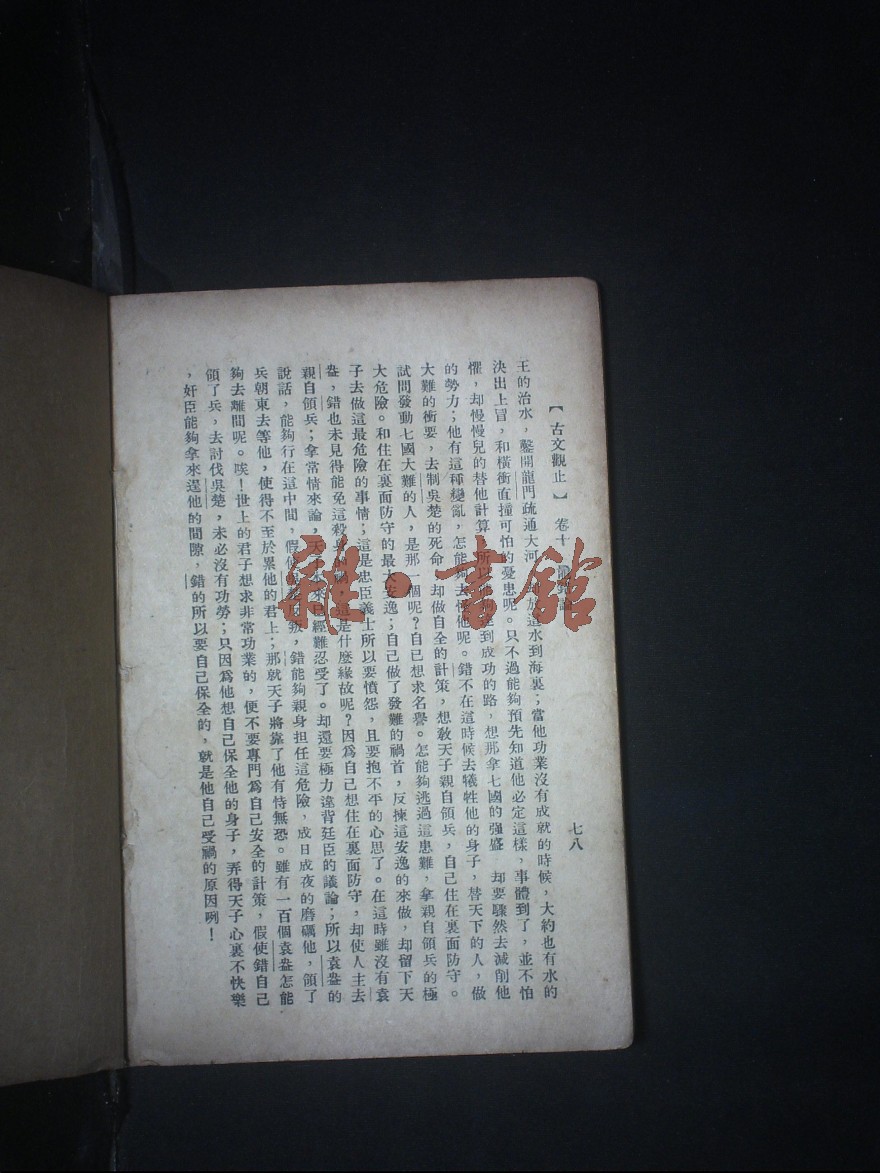 【古文觀止】 卷十 鼂錯論 七八
王的治水，鑿開龍門疏通大河 却放這水到海裏；當他功業沒有成就的時候，大約也有水的
決出上冒，和橫衝直撞可怕的憂患呢。只不過能夠預先知道他必定這樣，事體到了，並不怕
懼，却慢慢兒的替他計算 所以他 到成功的路，想那拿七國的強盛 却要驟然去減削他
的勢力；他有這種變亂，怎能夠去怪他呢。錯不在這時候去犧牲他的身子，替天下的人，做
大難的衝要，去制吳楚的死命 却做自全的計策，想教天子親自領兵，自己住在裏面防守。
試問發動七國大難的人，是那一個呢？自己想求名譽。怎能夠逃過這患難，拿親自領兵的極
大危險。和住在裏面防守的最大安逸；自己做了發難的禍首，反揀這安逸的來做，却留下天
子去做這最危險的事情；這是忠臣義士所以要憤怨，且要抱不平的心思了。在這時雖沒有袁
盎，錯也未見得能免這殺身的禍，這是什麼緣故呢？因爲自己想住在裏面防守，却使人主去
親自領兵；拿常情來論，天子本來已經難忍受了。却還要極力違背廷臣的議論；所以袁盎的
說話，能夠行在這中間，假使吳楚反叛，錯能夠親身担任這危險，成日成夜的磨礪他，領了
兵朝東去等他，使得不至於累他的君上；那就天子將靠了他有恃無恐。雖有一百個袁盎怎能
夠去離間呢。唉！世上的君子想求非常功業的，便不要專門爲自己安全的計策，假使錯自己
領了兵，去討伐吳楚，未必沒有功勞；只因爲他想自己保全他的身子，弄得天子心裏不快樂
，奸臣能夠拿來逞他的間隙，錯的所以要自己保全的，就是他自己受禍的原因咧！
雜·書館